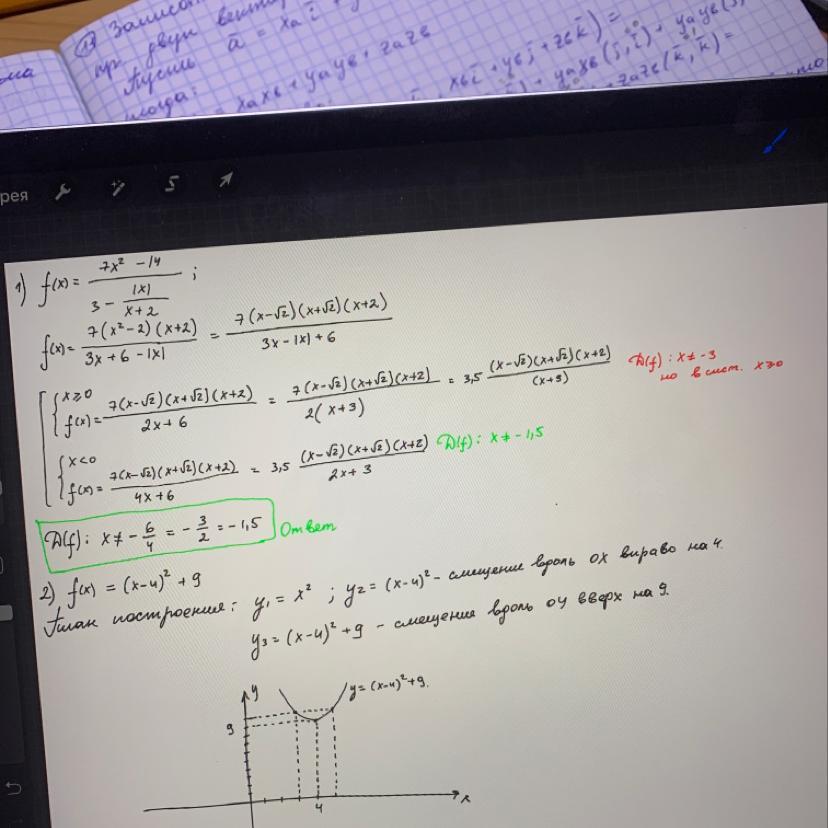 13 Записа
пр двух вект
Пусть a̅ = xa i̅ + y
тогда:
= xaxв + yayв + zazв
xвi̅ + yвj̅ + zвk̅) =
yaxв(j̅, i̅) + yayв(j̅
zazв(k̅, k̅) =
рея
1) f(x) = (7x² - 14) / (3 - |x|/(x+2)) ;
f(x) = 7(x²-2)(x+2) / (3x+6-|x|) = 7(x-√2)(x+√2)(x+2) / (3x-|x|+6)
x≥0
f(x) = 7(x-√2)(x+√2)(x+2) / (2x+6) = 7(x-√2)(x+√2)(x+2) / (2(x+3)) = 3,5 (x-√2)(x+√2)(x+2) / (x+3) D(f): x≠-3
но в сист. x≥0
x<0
f(x) = 7(x-√2)(x+√2)(x+2) / (4x+6) = 3,5 (x-√2)(x+√2)(x+2) / (2x+3) D(f): x≠-1,5
D(f): x≠ -6/4 = -3/2 = -1,5 Ответ
2) f(x) = (x-4)² + 9
План построения: y₁ = x² ; y₂ = (x-4)² - смещение вдоль ох вправо на 4.
y₃ = (x-4)² + 9 - смещения вдоль оу вверх на 9.
y
y = (x-4)² + 9.
9
4
x